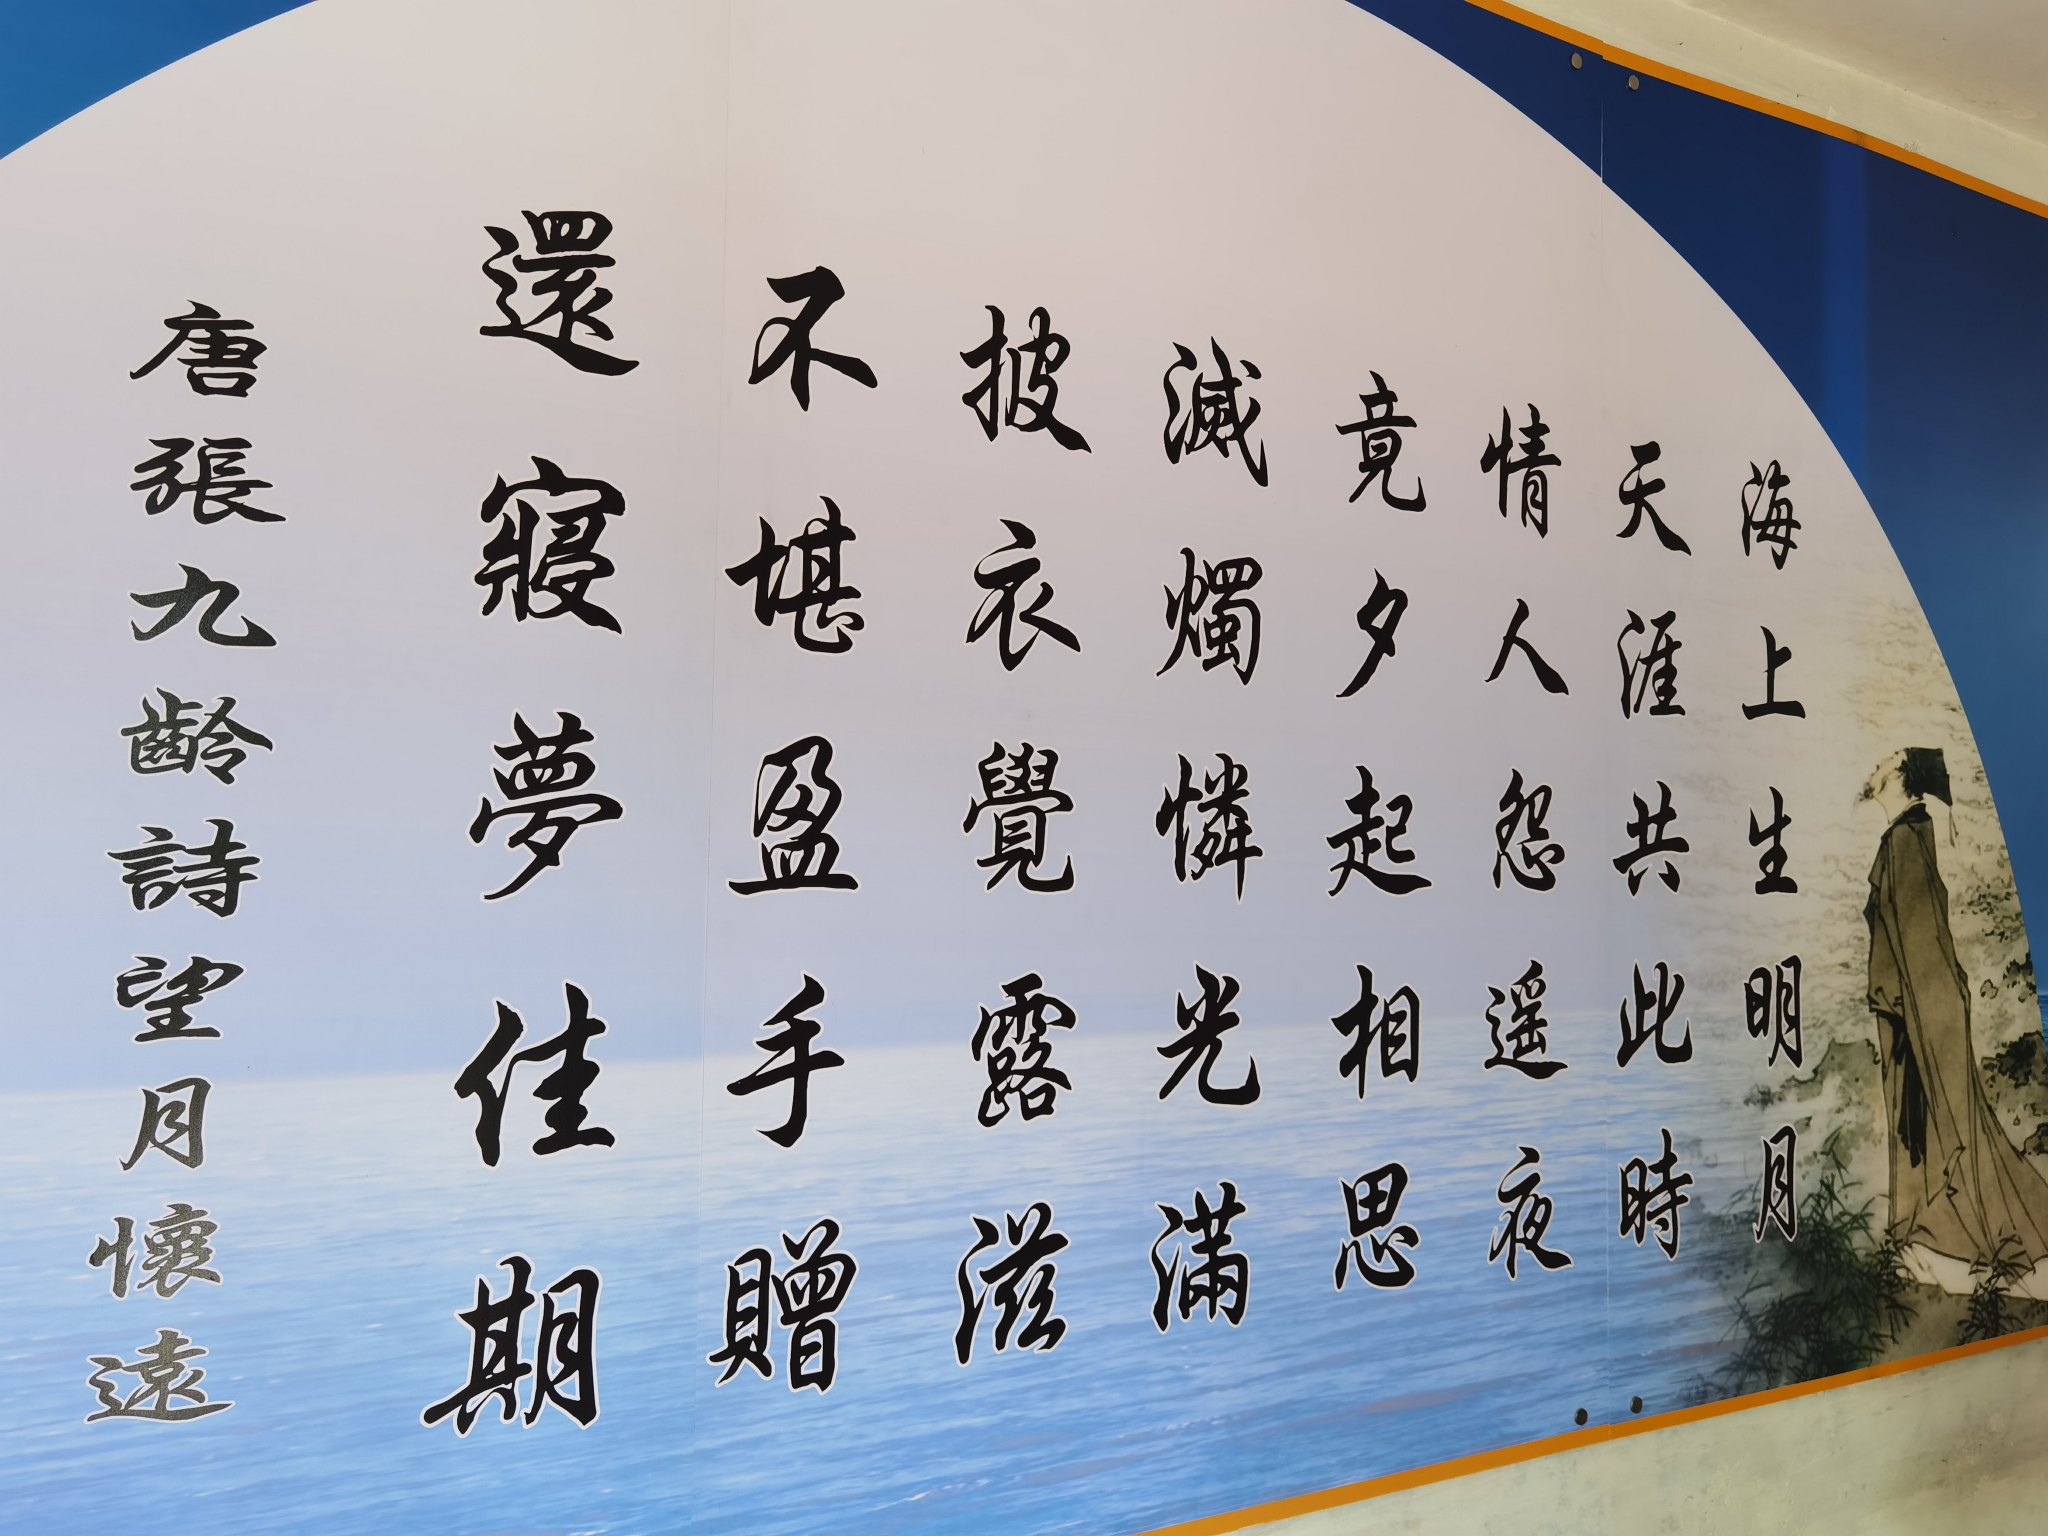 海上生明月
天涯共此時
情人怨遥夜
竟夕起相思
滅燭憐光滿
披衣覺露滋
不堪盈手贈
還寢夢佳期
唐張九齡詩望月懷遠